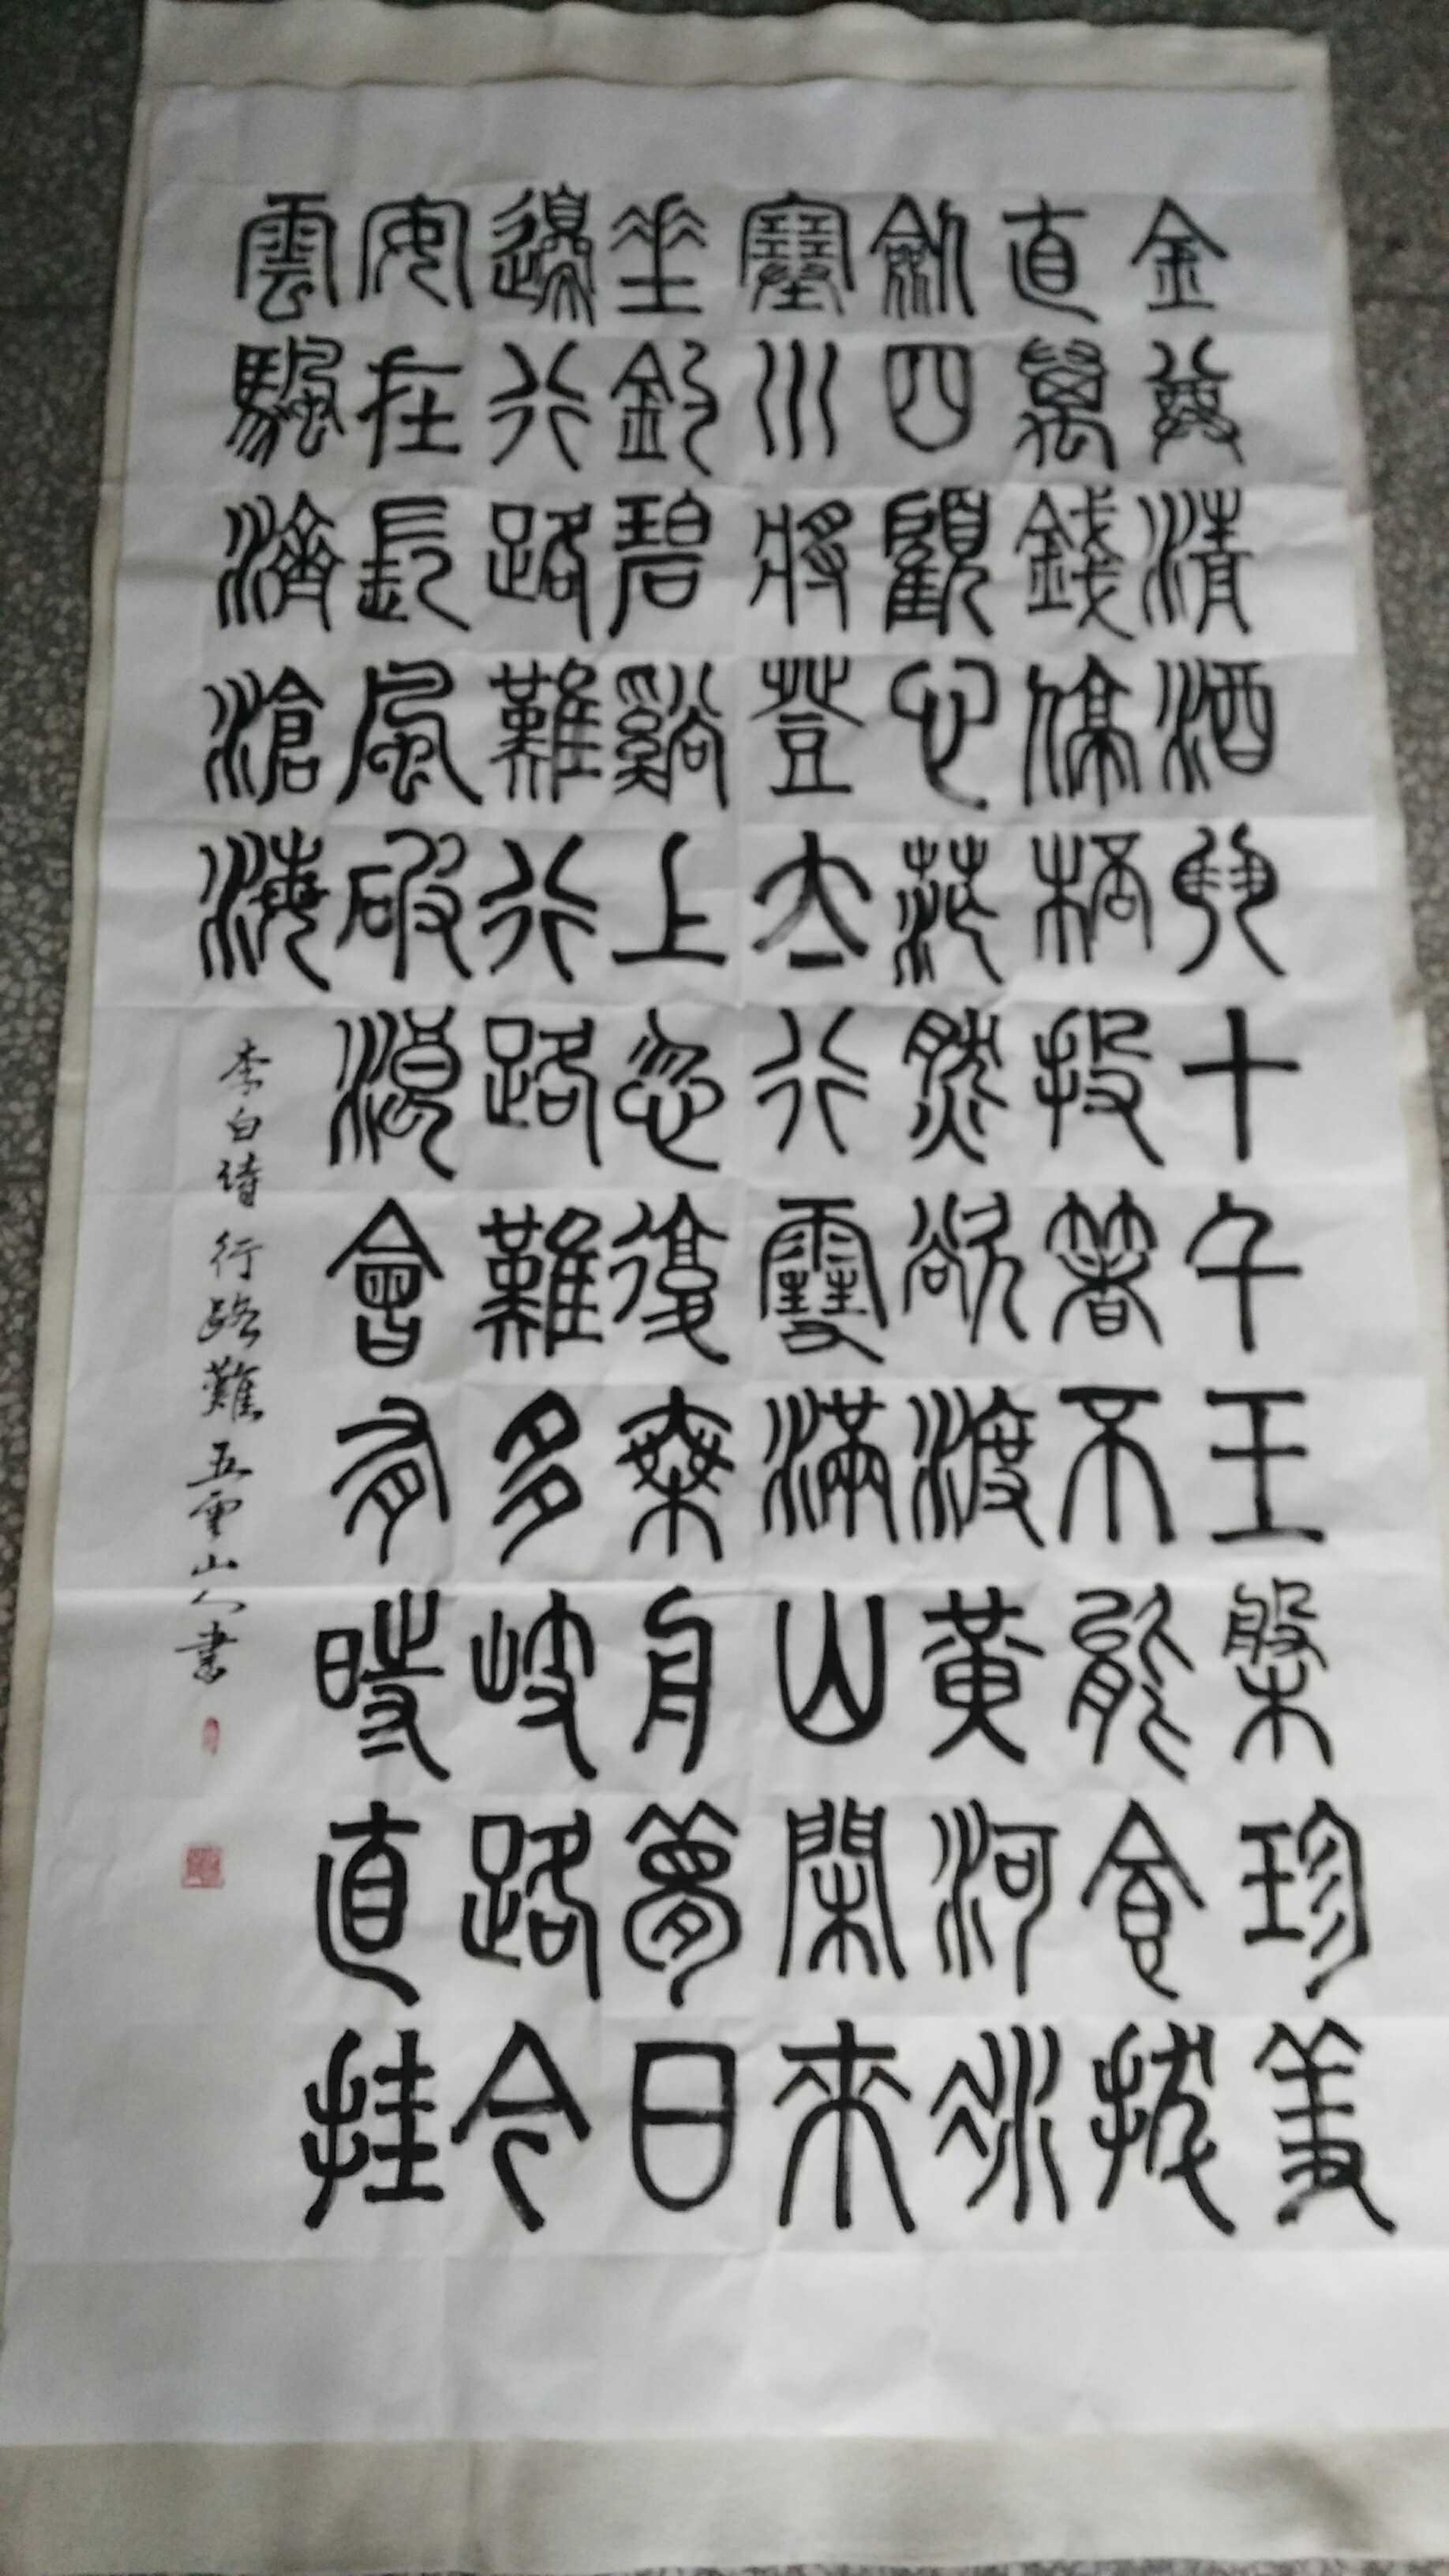 金尊清酒斗十千玉槃珍羞
直萬錢停桮投箸不能食拔
劍四顧心茫然欲渡黃河冰
塞川將登太行雪滿山閑來
坐釣碧谿上忽復乘舟夢日
邊行路難行路難多岐路今
安在長風破浪會有時直挂
雲颿濟滄海
李白詩行路難五雲山人書